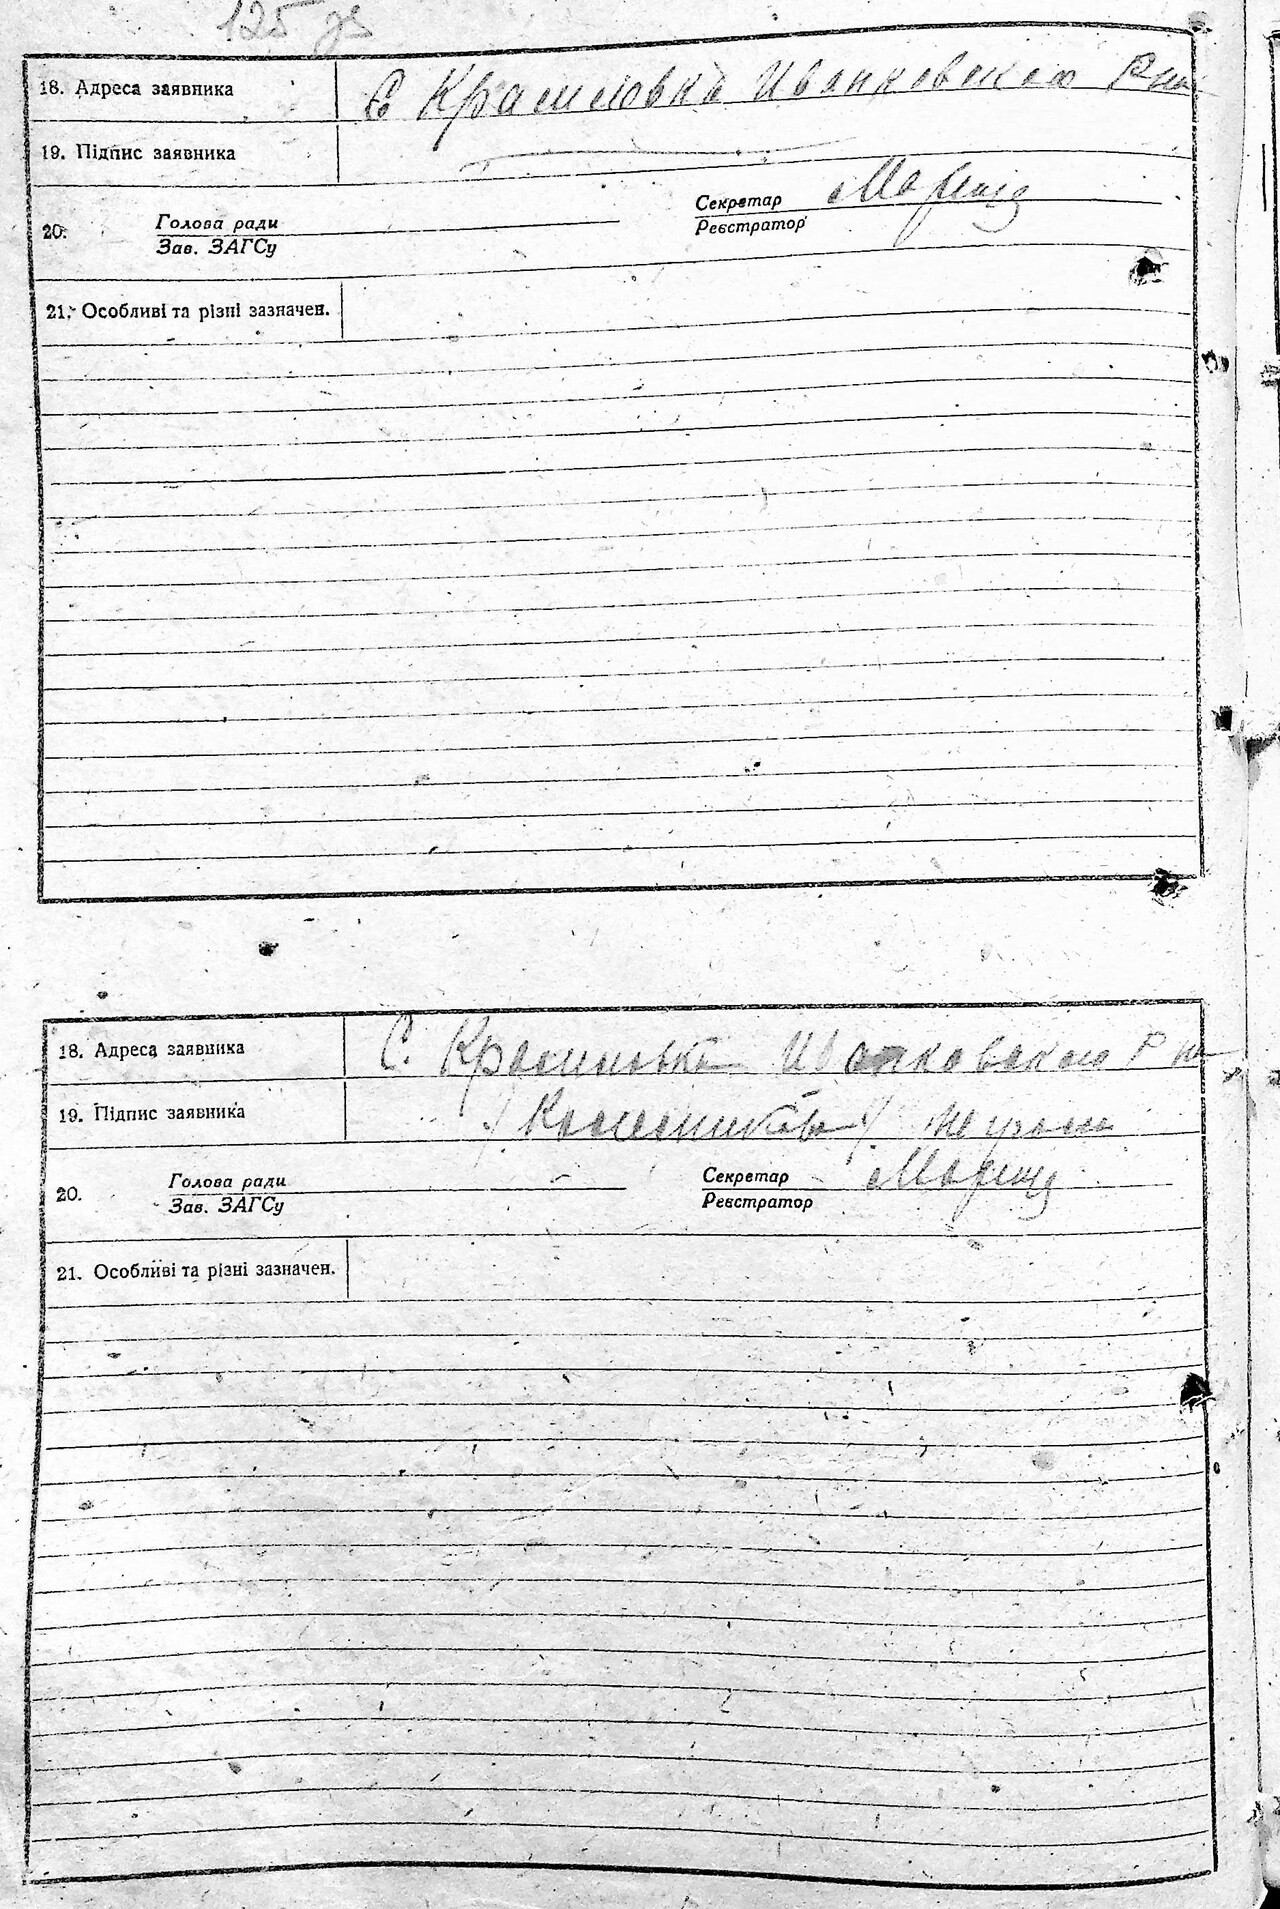 125 зв
18. Адреса заявника С Красиловка Иванковского Р на
19. Підпис заявника
20. Голова ради Зав. ЗАГСу Секретар Реєстратор
21. Особливі та різні зазначен.
18. Адреса заявника С. Красиловка Иванковского Р на
19. Підпис заявника /Колесникова/
20. Голова ради Зав. ЗАГСу Секретар Реєстратор
21. Особливі та різні зазначен.